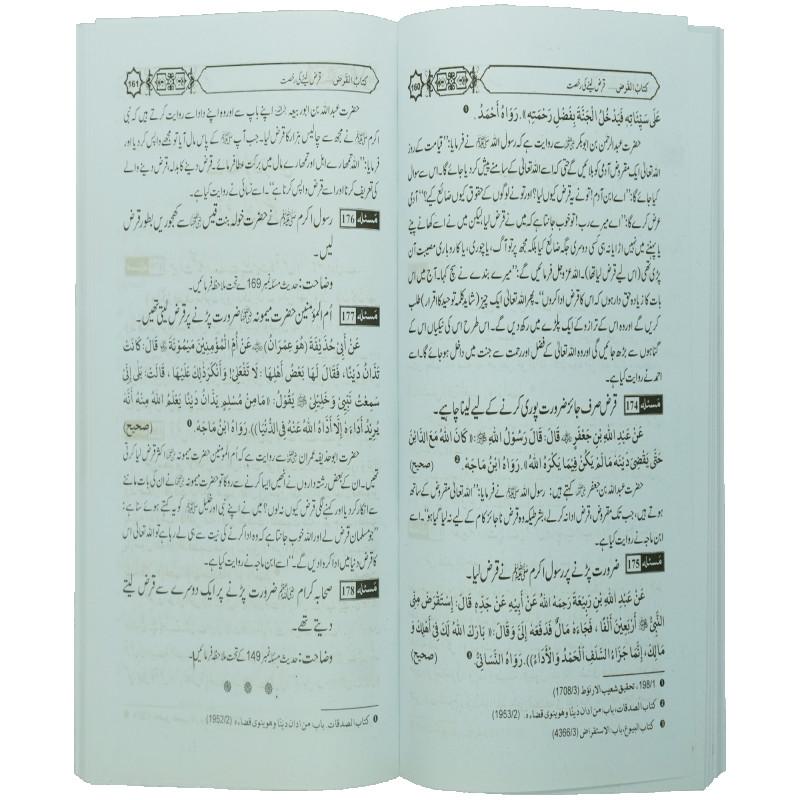 160 کتاب القرض ـــــ قرض لینے کی رخصت
عَلَى سَيِّئَاتِهِ فَيَدْخُلُ الْجَنَّةَ بِفَضْلِ رَحْمَتِهِ)). رَوَاهُ أَحْمَدُ .
حضرت عبدالرحمٰن بن ابوبکر ؓ سے روایت ہے کہ رسول اللہ ﷺ نے فرمایا: ”قیامت کے روز
اللہ تعالیٰ ایک مقروض آدمی کو بلائیں گے حتی کہ اسے اللہ تعالیٰ کے سامنے پیش کر دیا جائے گا۔ اس سے سوال
کیا جائے گا: ”اے ابن آدم! تو نے یہ قرض کیوں لیا؟ اور تو نے لوگوں کے حقوق کیوں ضائع کیے؟“ آدمی
عرض کرے گا: ”اے میرے رب! تو خوب جانتا ہے کہ میں نے قرض لیا، لیکن میں نے اسے کھانے پینے
یا پہننے میں نہیں اڑایا نہ ہی کسی دوسری جگہ ضائع کیا بلکہ مجھ پر تو آگ، یا چوری، یا کاروباری مصیبت آن
پڑی تھی (اس لیے قرض لیا تھا)۔ اللہ عزوجل فرمائیں گے: ”میرے بندے نے سچ کہا۔ آج میں اس
بات کا زیادہ حق دار ہوں کہ اس کا قرض ادا کروں“۔ پھر اللہ تعالیٰ ایک چیز (شاید کلمہ توحید کا اقرار) طلب
کریں گے اور وہ اس کے ترازو کے ایک پلڑے میں رکھ دیں گے۔ اس طرح اس کی نیکیاں اس کے
گناہوں سے بڑھ جائیں گی اور وہ اللہ تعالیٰ کے فضل اور رحمت سے جنت میں داخل ہو جائے گا۔ اسے
احمد نے روایت کیا ہے۔
مسئلہ 174 قرض صرف جائز ضرورت پوری کرنے کے لیے لینا چاہیے۔
عَنْ عَبْدِ اللهِ بْنِ جَعْفَرٍ ؓ قَالَ: قَالَ رَسُولُ اللهِ ﷺ: ((كَانَ اللهُ مَعَ الدَّائِنِ
حَتَّى يَقْضِيَ دَيْنَهُ مَا لَمْ يَكُنْ فِيمَا يَكْرَهُ اللهُ)). رَوَاهُ ابْنُ مَاجَهْ. (صحيح)
حضرت عبداللہ بن جعفر ؓ کہتے ہیں: رسول اللہ ﷺ نے فرمایا: ”اللہ تعالیٰ مقروض کے ساتھ
ہوتے ہیں، جب تک مقروض، قرض ادا نہ کر لے، بشرطیکہ وہ قرض ناجائز کام کے لیے نہ لیا گیا ہو“۔ اسے
ابن ماجہ نے روایت کیا ہے۔
مسئلہ 175 ضرورت پڑنے پر رسول اکرم ﷺ نے قرض لیا۔
عَنْ عَبْدِ اللهِ بْنِ رَبِيعَةَ رَحِمَهُ اللهُ عَنْ أَبِيهِ عَنْ جَدِّهِ قَالَ: اِسْتَقْرَضَ مِنِّي
النَّبِيُّ ﷺ أَرْبَعِينَ أَلْفًا، فَجَاءَهُ مَالٌ فَدَفَعَهُ إِلَيَّ وَقَالَ: ((بَارَكَ اللهُ لَكَ فِي أَهْلِكَ وَ
مَالِكَ، إِنَّمَا جَزَاءُ السَّلَفِ الْحَمْدُ وَالْأَدَاءُ)). رَوَاهُ النَّسَائِيُّ. (صحيح)
198/1، تحقیق شعیب الارنوط (1708/3)
کتاب الصدقات، باب من ادان دینا وھو ینوی قضاءہ. (1953/2)
کتاب البیوع، باب الاستقراض (4366/3)
161 کتاب القرض ـــــ قرض لینے کی رخصت
حضرت عبداللہ بن ابو ربیعہ اپنے باپ سے اور وہ اپنے دادا سے روایت کرتے ہیں کہ نبی
اکرم ﷺ نے مجھ سے چالیس ہزار کا قرض لیا۔ جب آپ ﷺ کے پاس مال آیا تو مجھے واپس کر دیا اور
فرمایا: ”اللہ تمھارے اہل اور تمھارے مال میں برکت عطا فرمائے۔ قرض دینے کا بدلہ، قرض دینے والے
کی تعریف کرنا اور اسے قرض واپس کرنا ہے“۔ اسے نسائی نے روایت کیا ہے۔
مسئلہ 176 رسول اکرم ﷺ نے حضرت خولہ بنت قیس ؓ سے کھجوریں بطور قرض
لیں۔
وضاحت: حدیث مسئلہ نمبر 169 کے تحت ملاحظہ فرمائیں۔
مسئلہ 177 اُم المؤمنین حضرت میمونہ ؓ ضرورت پڑنے پر قرض لیتی تھیں۔
عَنْ أَبِي حُذَيْفَةَ (هُوَ عِمْرَانُ) ؓ عَنْ أُمِّ الْمُؤْمِنِينَ مَيْمُونَةَ ؓ قَالَ: كَانَتْ
تَدَّانُ دَيْنًا، فَقَالَ لَهَا بَعْضُ أَهْلِهَا: لَا تَفْعَلِيْ! وَأَنْكَرَ ذَلِكَ عَلَيْهَا، قَالَتْ: بَلَى إِنِّي
سَمِعْتُ نَبِيِّي وَخَلِيلِي ﷺ يَقُولُ: ((مَا مِنْ مُسْلِمٍ يَدَّانُ دَيْنًا يَعْلَمُ اللهُ مِنْهُ أَنَّهُ
يُرِيْدُ أَدَاءَهُ إِلَّا أَدَّاهُ اللهُ عَنْهُ فِي الدُّنْيَا)). رَوَاهُ ابْنُ مَاجَهْ. (صحيح)
حضرت ابو حذیفہ عمران ؓ سے روایت ہے کہ اُم المومنین حضرت میمونہ ؓ اکثر قرض لیا کرتی
تھیں۔ ان کے بعض رشتہ داروں نے انھیں ایسا کرنے سے روکا تو حضرت میمونہ ؓ نے ان کی بات ماننے
سے انکار کر دیا اور کہنے لگیں قرض کیوں نہ لوں؟ میں نے اپنے نبی اور خلیل ﷺ کو یہ کہتے ہوئے سنا ہے:
”جو مسلمان قرض لے اور اللہ خوب جانتا ہے کہ وہ ادا کرنے کی نیت سے ہی لے رہا ہے تو اللہ تعالیٰ اس
کا قرض دنیا میں ادا کروا دیں گے۔“ اسے ابن ماجہ نے روایت کیا ہے۔
مسئلہ 178 صحابہ کرام ؓ ضرورت پڑنے پر ایک دوسرے سے قرض لیتے
دیتے تھے۔
وضاحت: حدیث مسئلہ نمبر 149 کے تحت ملاحظہ فرمائیں۔
کتاب الصدقات، باب من ادان دینا وھو ینوی قضاءہ (1952/2)